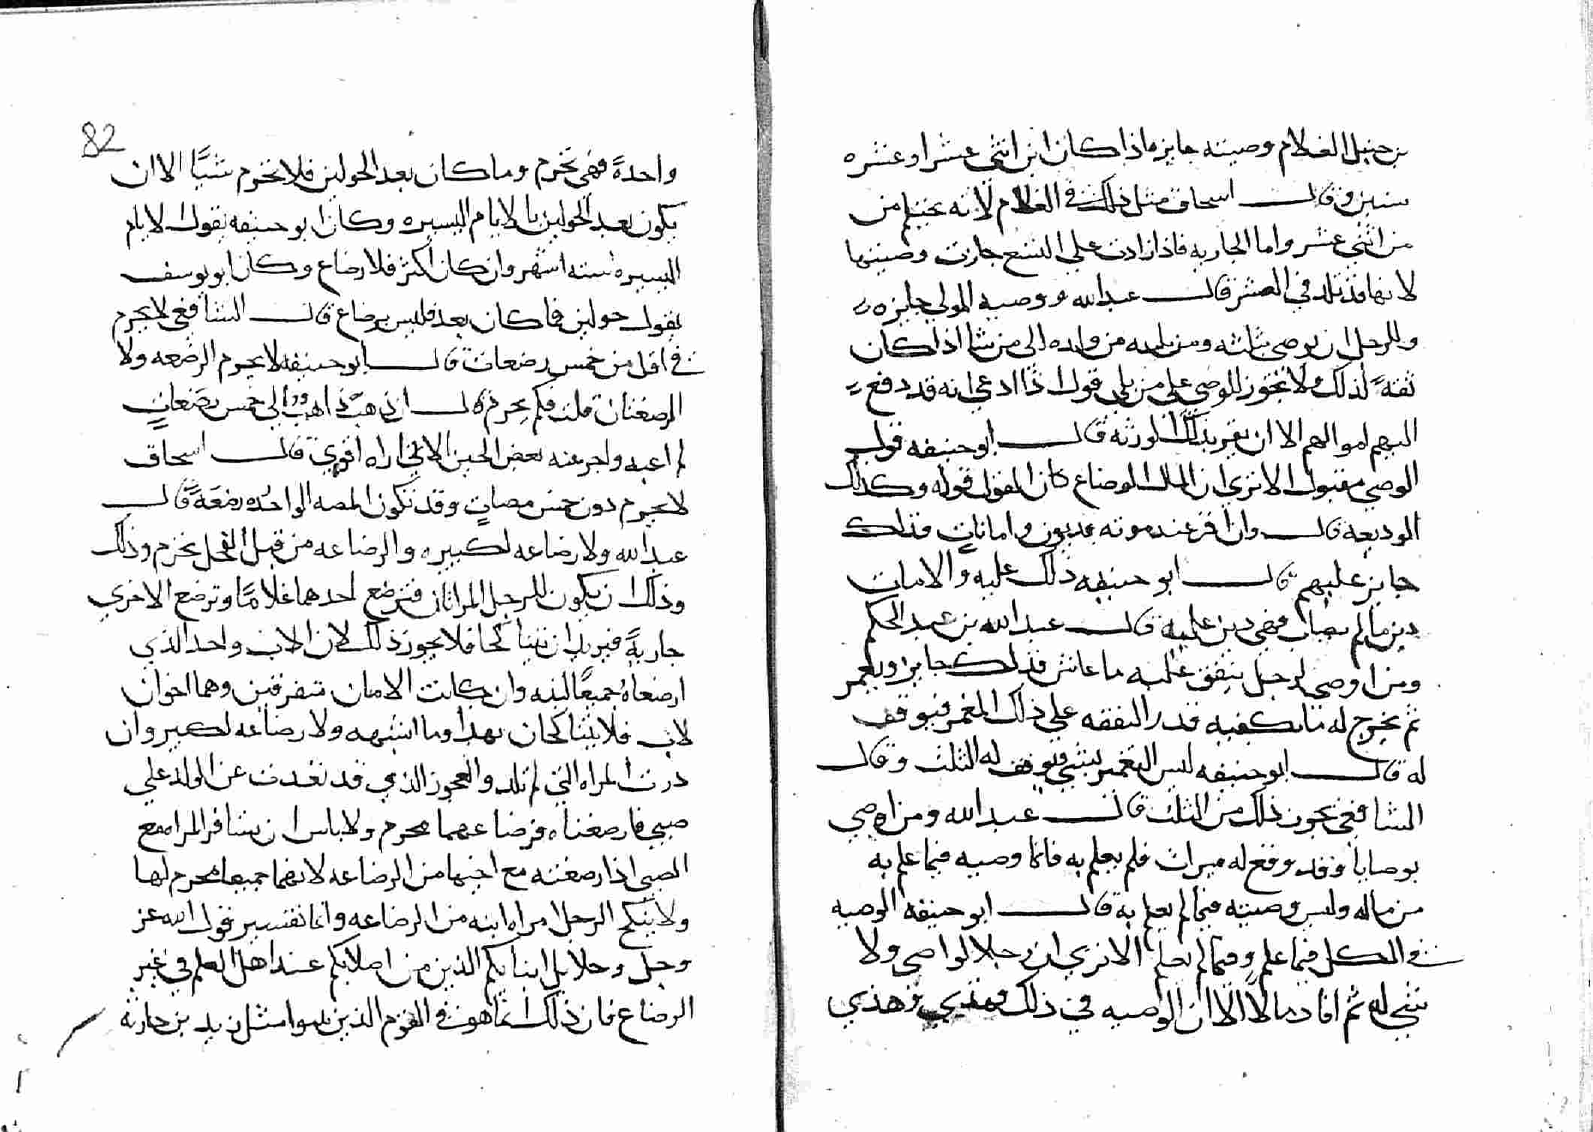 بن حنبل الغلام وصيته جايز ماذا كان ابن اثني عشر او عشره
سنين وقال اسحاق مثل ذلك في الغلام لانه يحتلم من
من اثني عشر واما الجاريه فاذا زادت على التسع جازت وصيتها
لانها قد تلد في العشر قال عبد الله ووصيه المولى جايزه
وللرجل ان يوصي بثلثه ومن يليه من ولده الى من شا اذا كان
ثقة لذلك ولا تجوز للوصي على من يلي قول اذا ادعى انه قد دفع
اليهم اموالهم الا ان يقر بذلك الورثه قال ابو حنيفه قول
الوصي مقبول الا ترى ان المال لو ضاع كان القول قوله وكذلك
الوديعه قال وان اقر عند موته بديون وامانات فذلك
جايز عليهم قال ابو حنيفه ذلك عليه والامانات
دين مالم فهي دين عليه قال عبد الله بن عبد الحكم
ومن اوصى لرجل ينفق عليه ما عاش فذلك جايز ويعمر
ثم يخرج له ما يكفيه قدر النفقه على ذلك المعمر فيوقف
له قال ابو حنيفه ليس التعمير بشي فيوقف له الثلث وقال
الشافعي يكون ذلك من الثلث قال عبد الله ومن اوصى
بوصايا وقد وقع له ميراث فلم يعلم به فانما وصيه فيما علم به
من ماله وليس وصيته فيما لم يعلم به قال ابو حنيفه الوصيه
في الكل فيما علم وفيما لم يعلم الا ترى ان رجلا لو اوصى ولا
شي له ثم افاد مالا الا ان الوصيه في ذلك وهذي
82
واحدة فهي تحرم وما كان بعد الحولين فلا تحرم شيا الا ان
يكون بعد الحولين بالايام اليسيره وكان ابو حنيفه يقول الايام
اليسيره سته اشهر وان كان اكثر فلا رضاع وكان ابو يوسف
يقول حولين فما كان بعد فليس برضاع قال الشافعي لا يحرم
في اقل من خمس رضعات قال ابو حنيفه لا يحرم الرضعه ولا
الرضعتان قلت فكم يحرم قال ان ذهب ذاهب الى خمس رضعات
لم اعبه واجبن عنه بعض الجبن الا اني اراه اقوى قال اسحاق
لا يحرم دون خمس مصات وقد تكون المصه الواحده رضعة قال
عبد الله ولا رضاعه لكبير والرضاعه من قبل الفحل تحرم وذلك
وذلك ان يكون للرجل المراتان فترضع احدهما غلاما وترضع الاخرى
جارية فيريدان يتناكحا فلا يجوز ذلك لان الاب واحد الذي
ارضعاه جميعا لبنه وان كانت الامان متفرقين وهما اخوان
لاب فلا يتناكحان بهذا وما اشبهه ولا رضاعه لكبير وان
درت المراه التي لم تلد والعجوز الذي قد تعدت عن الولد على
صبي فارضعتاه فرضاعهما محرم ولا باس ان يسافر المرا مع
الصبي اذا ارضعته مع اختها من الرضاعه لانهما جميعا محرم لها
ولا ينكح الرجل امراه ابنه من الرضاعه وانما تفسير قول الله عز
وجل وحلايل ابنايكم الذين من اصلابكم عند اهل العلم في غير
الرضاع فان ذلك انما هو في القوم الذين تبنوا مثل زيد بن حارثه